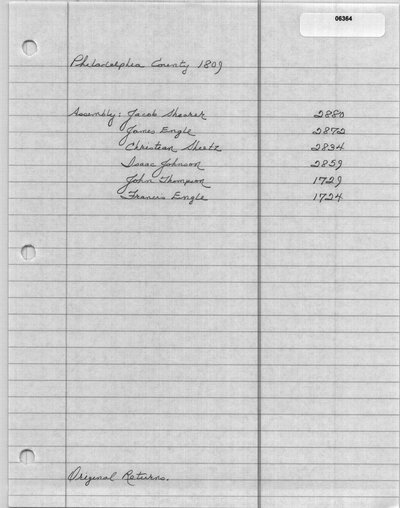 06364
Philadelphia County 1809
Assembly: Jacob Shearer 2880
James Engle 2872
Christian Sheetz 2834
Isaac Johnson 2859
John Thompson 1729
Francis Engle 1724
Original Returns.